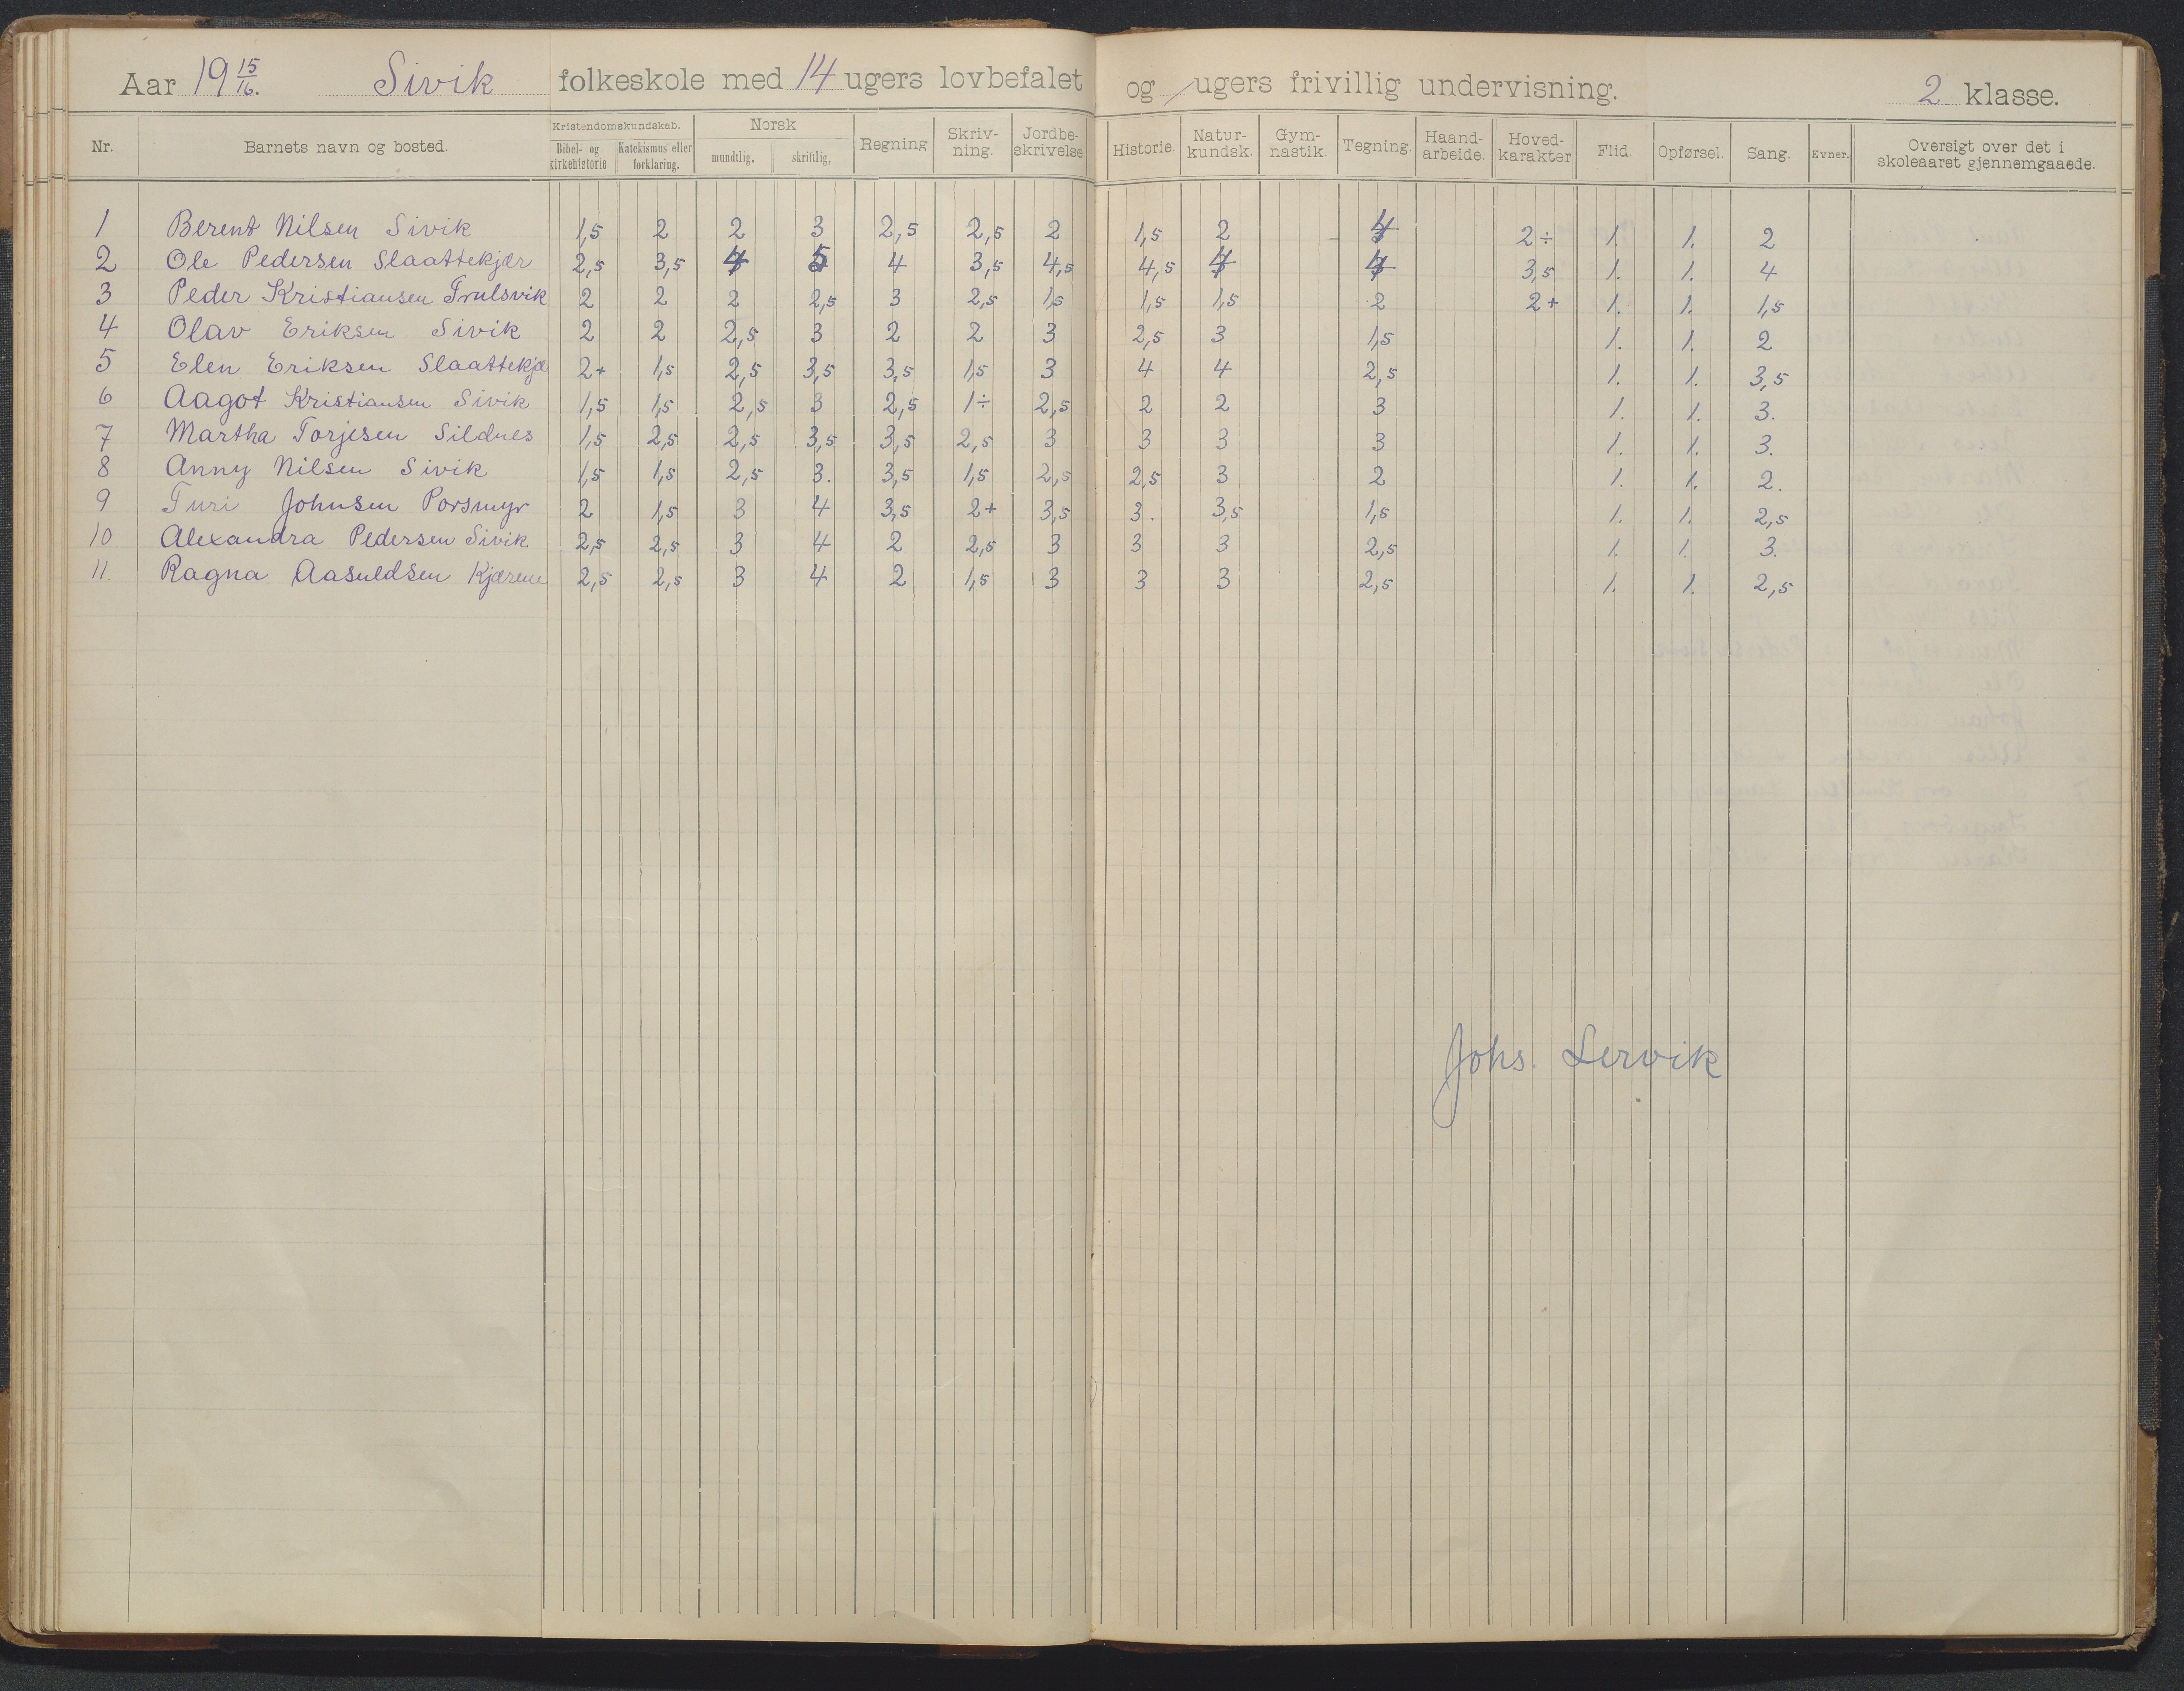 Aar 19 15/16. Sivik folkeskole med 14 ugers lovbefalet og / ugers frivillig undervisning. 2 klasse.
Nr. Barnets navn og bosted. Kristendomskundskab. Bibel- og kirkehistorie Katekismus eller forklaring. Norsk mundtlig. skriftlig, Regning Skriv-ning. Jordbe-skrivelse Historie. Natur-kundsk. Gym-nastik. Tegning. Haand-arbeide. Hoved-karakter Flid. Opførsel. Sang. Evner. Oversigt over det i skoleaaret gjennemgaaede.
1 Berent Nilsen Sivik 1,5 2 2 3 2,5 2,5 2 1,5 2 4 2÷ 1. 1. 2
2 Ole Pedersen Slaattekjær 2,5 3,5 4 5 4 3,5 4,5 4,5 4 4 3,5 1. 1. 4
3 Peder Kristiansen Trulsvik 2 2 2 2,5 3 2,5 1,5 1,5 1,5 2 2+ 1. 1. 1,5
4 Olav Eriksen Sivik 2 2 2,5 3 2 2 3 2,5 3 1,5 1. 1. 2
5 Elen Eriksen Slaattekjæ 2+ 1,5 2,5 3,5 3,5 1,5 3 4 4 2,5 1. 1. 3,5
6 Aagot Kristiansen Sivik 1,5 1,5 2,5 3 2,5 1÷ 2,5 2 2 3 1. 1. 3.
7 Martha Torjesen Sildnes 1,5 2,5 2,5 3,5 3,5 2,5 3 3 3 3 1. 1. 3.
8 Anny Nilsen Sivik 1,5 1,5 2,5 3. 3,5 1,5 2,5 2,5 3 2 1. 1. 2.
9 Turi Johnsen Porsmyr 2 1,5 3 4 3,5 2+ 3,5 3. 3,5 1,5 1. 1. 2,5
10 Alexandra Pedersen Sivik 2,5 2,5 3 4 2 2,5 3 3 3 2,5 1. 1. 3.
11. Ragna Aasuldsen Kjærene 2,5 2,5 3 4 2 1,5 3 3 3 2,5 1. 1. 2,5
Johs. Lervik